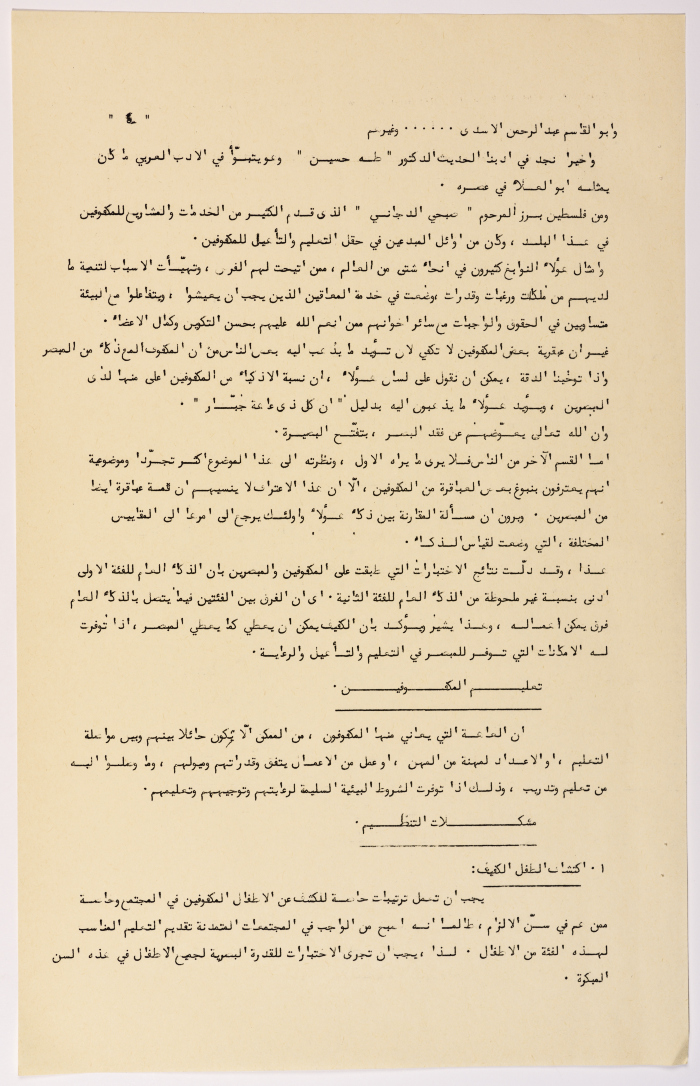 " ٤ "
وابو القاسم عبد الرحمن الاسدى ٠٠٠٠٠٠ وغيرهم
واخيرا نجد في ادبنا الحديث الدكتور " طـه حسيـن " وهو يتبـوّأ في الادب العربي ما كان
يمثلـه ابو العـلاء في عصره ٠
ومن فلسطين برز المرحوم " صبحي الدجانـي " الذى قـدم الكثيـر من الخدمات والمشاريع للمكفوفين
في هـذا البلـد ، وكان من اوائل المبدعين في حقل التعليم والتأهيل للمكفوفين ٠
وامثال هؤلاء النوابغ كثيرون في انحاء شتى من العالم ، ممن اتيحت لهم الفرص ، وتهيّـأت الاسباب لتنمية ما
لديهـم من ملكات ورغبات وقدرات وضعت في خدمة المعاقين الذين يجب ان يعيشوا ، ويتفاعلوا مع البيئة
متساويين في الحقوق والواجبات مع سائر اخوانهم ممن انعم الله عليهم بحسن التكوين وكمال الاعضاء ٠
غيـر ان عبقرية بعض المكفوفين لا تكفي لان تـؤيد ما يذهب اليه بعض الناس من ان المكفوف المع ذكاء من المبصر
واذا توخّينا الدقة ، يمكن ان نقول على لسان هـؤلاء ، ان نسبة الاذكياء من المكفوفين اعلى منها لدى
المبصرين ، ويـؤيد هـؤلاء ما يذهبون اليه بدليل " ان كل ذى عاهة جّبـار " ٠
وان الله تعالى يعـوّضهـم عن فقد البصر ، بتفتّـح البصيـرة ٠
امـا القسم الآخر من الناس فـلا يرى ما يراه الاول ، ونظرته الى هذا الموضوع اكثـر تجرّدا وموضوعية
انهم يعترفون بنبوغ بعض العباقرة من المكفوفين ، الّا ان هذا الاعتراف لا ينسيهـم ان ثمـة عباقرة ايضا
من المبصرين ٠ ويرون ان مسـألة المقارنة بين ذكاء هـؤلاء واولئـك يرجع الى امرها الى المقاييس
المختلفة ، التي وضعت لقياس الـذكـاء ٠
هـذا ، وقـد دلّـت نتائج الاختبارات التي طبقت على المكفوفين والمبصرين بان الذكاء العـام للفئة الاولى
ادنى بنسبـة غير ملحوظة من الذكاء العام للفئة الثانية ٠ اى ان الفرق بين الفئتين فيما يتصل بالذكاء العام
فرق يمكن اهمـالـه ، وهـذا يشير ويـؤكـد بان الكفيف يمكن ان يعطي كما يعطي المبصـر ، اذا توفرت
لـه الامكانات التي تـوفـر للمبصر في التعليم والتـأهيل والرعايـة ٠
تعليـــم المكفـــوفيـــن ٠
ان العـاهـة التي يعاني منها المكفوفون ، من الممكن الّا يكون حائلا بينهم وبين مواصلة
التعليم ، او الاعداد لمهنة من المهن ، او عمل من الاعمال يتفق وقدراتهم وميولهم ، وما وصلـوا اليـه
من تعليم وتدريب ، وذلـك اذا توفرت الشروط البيئية السليمة لرعايتهم وتوجيههـم وتعليمهم ٠
مشكـــلات التنظـــيم ٠
١ ٠ اكتشاف الطفل الكفيف :
يجب ان تعمل ترتيبات خاصـة للكشف عن الاطفال المكفوفين في المجتمع وخاصـة
ممن هم في سـنّ الالزام ، طالمـا انـه اصبح من الواجب في المجتمعات المتمدنة تقديم التعليم المناسب
لهـذه الفئة من الاطفال ٠ لـذا ، يجب ان تجرى الاختبارات للقدرة البصرية لجميع الاطفال في هذه السن
المبكرة ٠